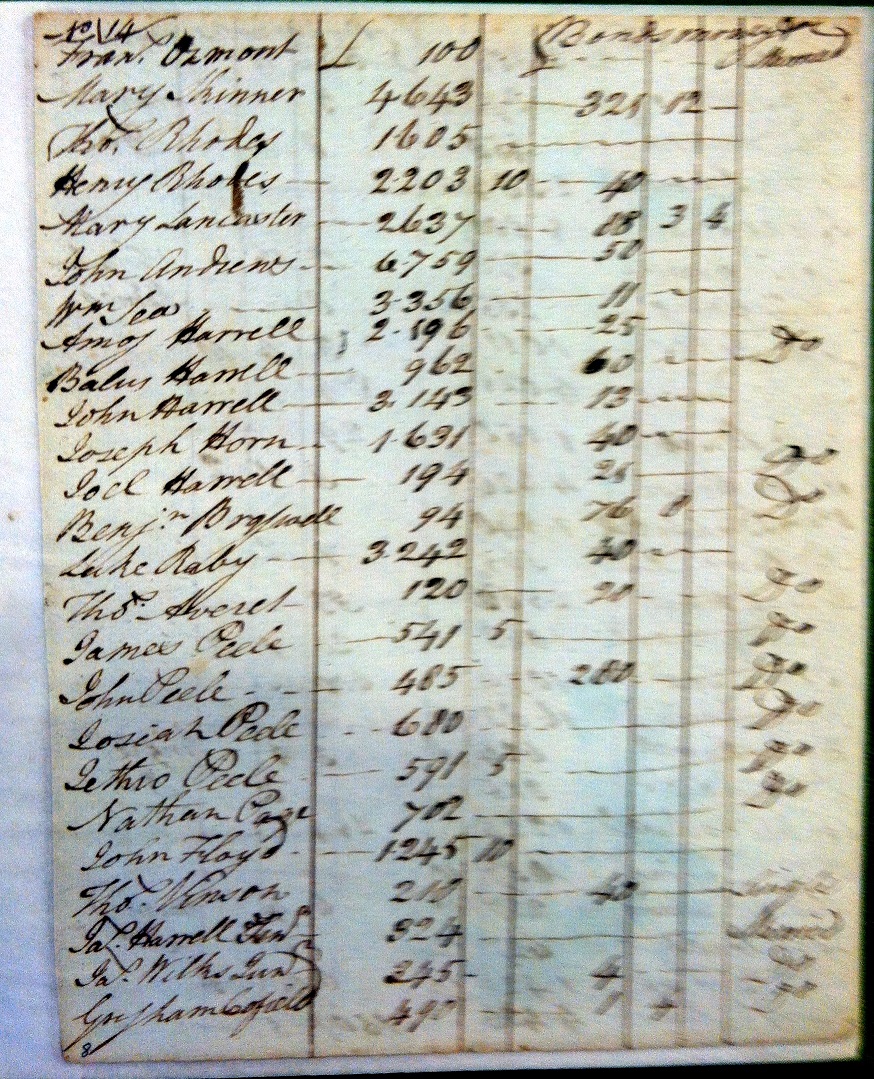 Fran.s Ozmont £ 100 Bonds money &c Married
Mary Skinner 4643 321 12
Tho.s Rhodes 1605
Henry Rhodes 2203 10 40
Mary Lancaster 2637 88 3 4
John Andrews 6759 50
Wm Sea 3356 11
Amos Harrell 2196 25 Do
Balus Harrell 962 60
John Harrell 3143 13
Joseph Horn 1631 40
Joel Harrell 194 25 Do
Benj.n 94 76 8 Do
Luke Raby 3242 40
Tho.s Averet 120 20 Do
James Peele 541 5 Do
John Peele 485 280 Do
Josiah Peele 680 Do
Jethro Peele 591 5 Do
Nathan Page 702 Do
John Floyd 1245 10
Tho.s Vinson 218 40 Single
Ja.s Harrell 324 Married
Ja.s Wilks Jun.r 245 4 Do
Gresham Cofield 490 Do
8